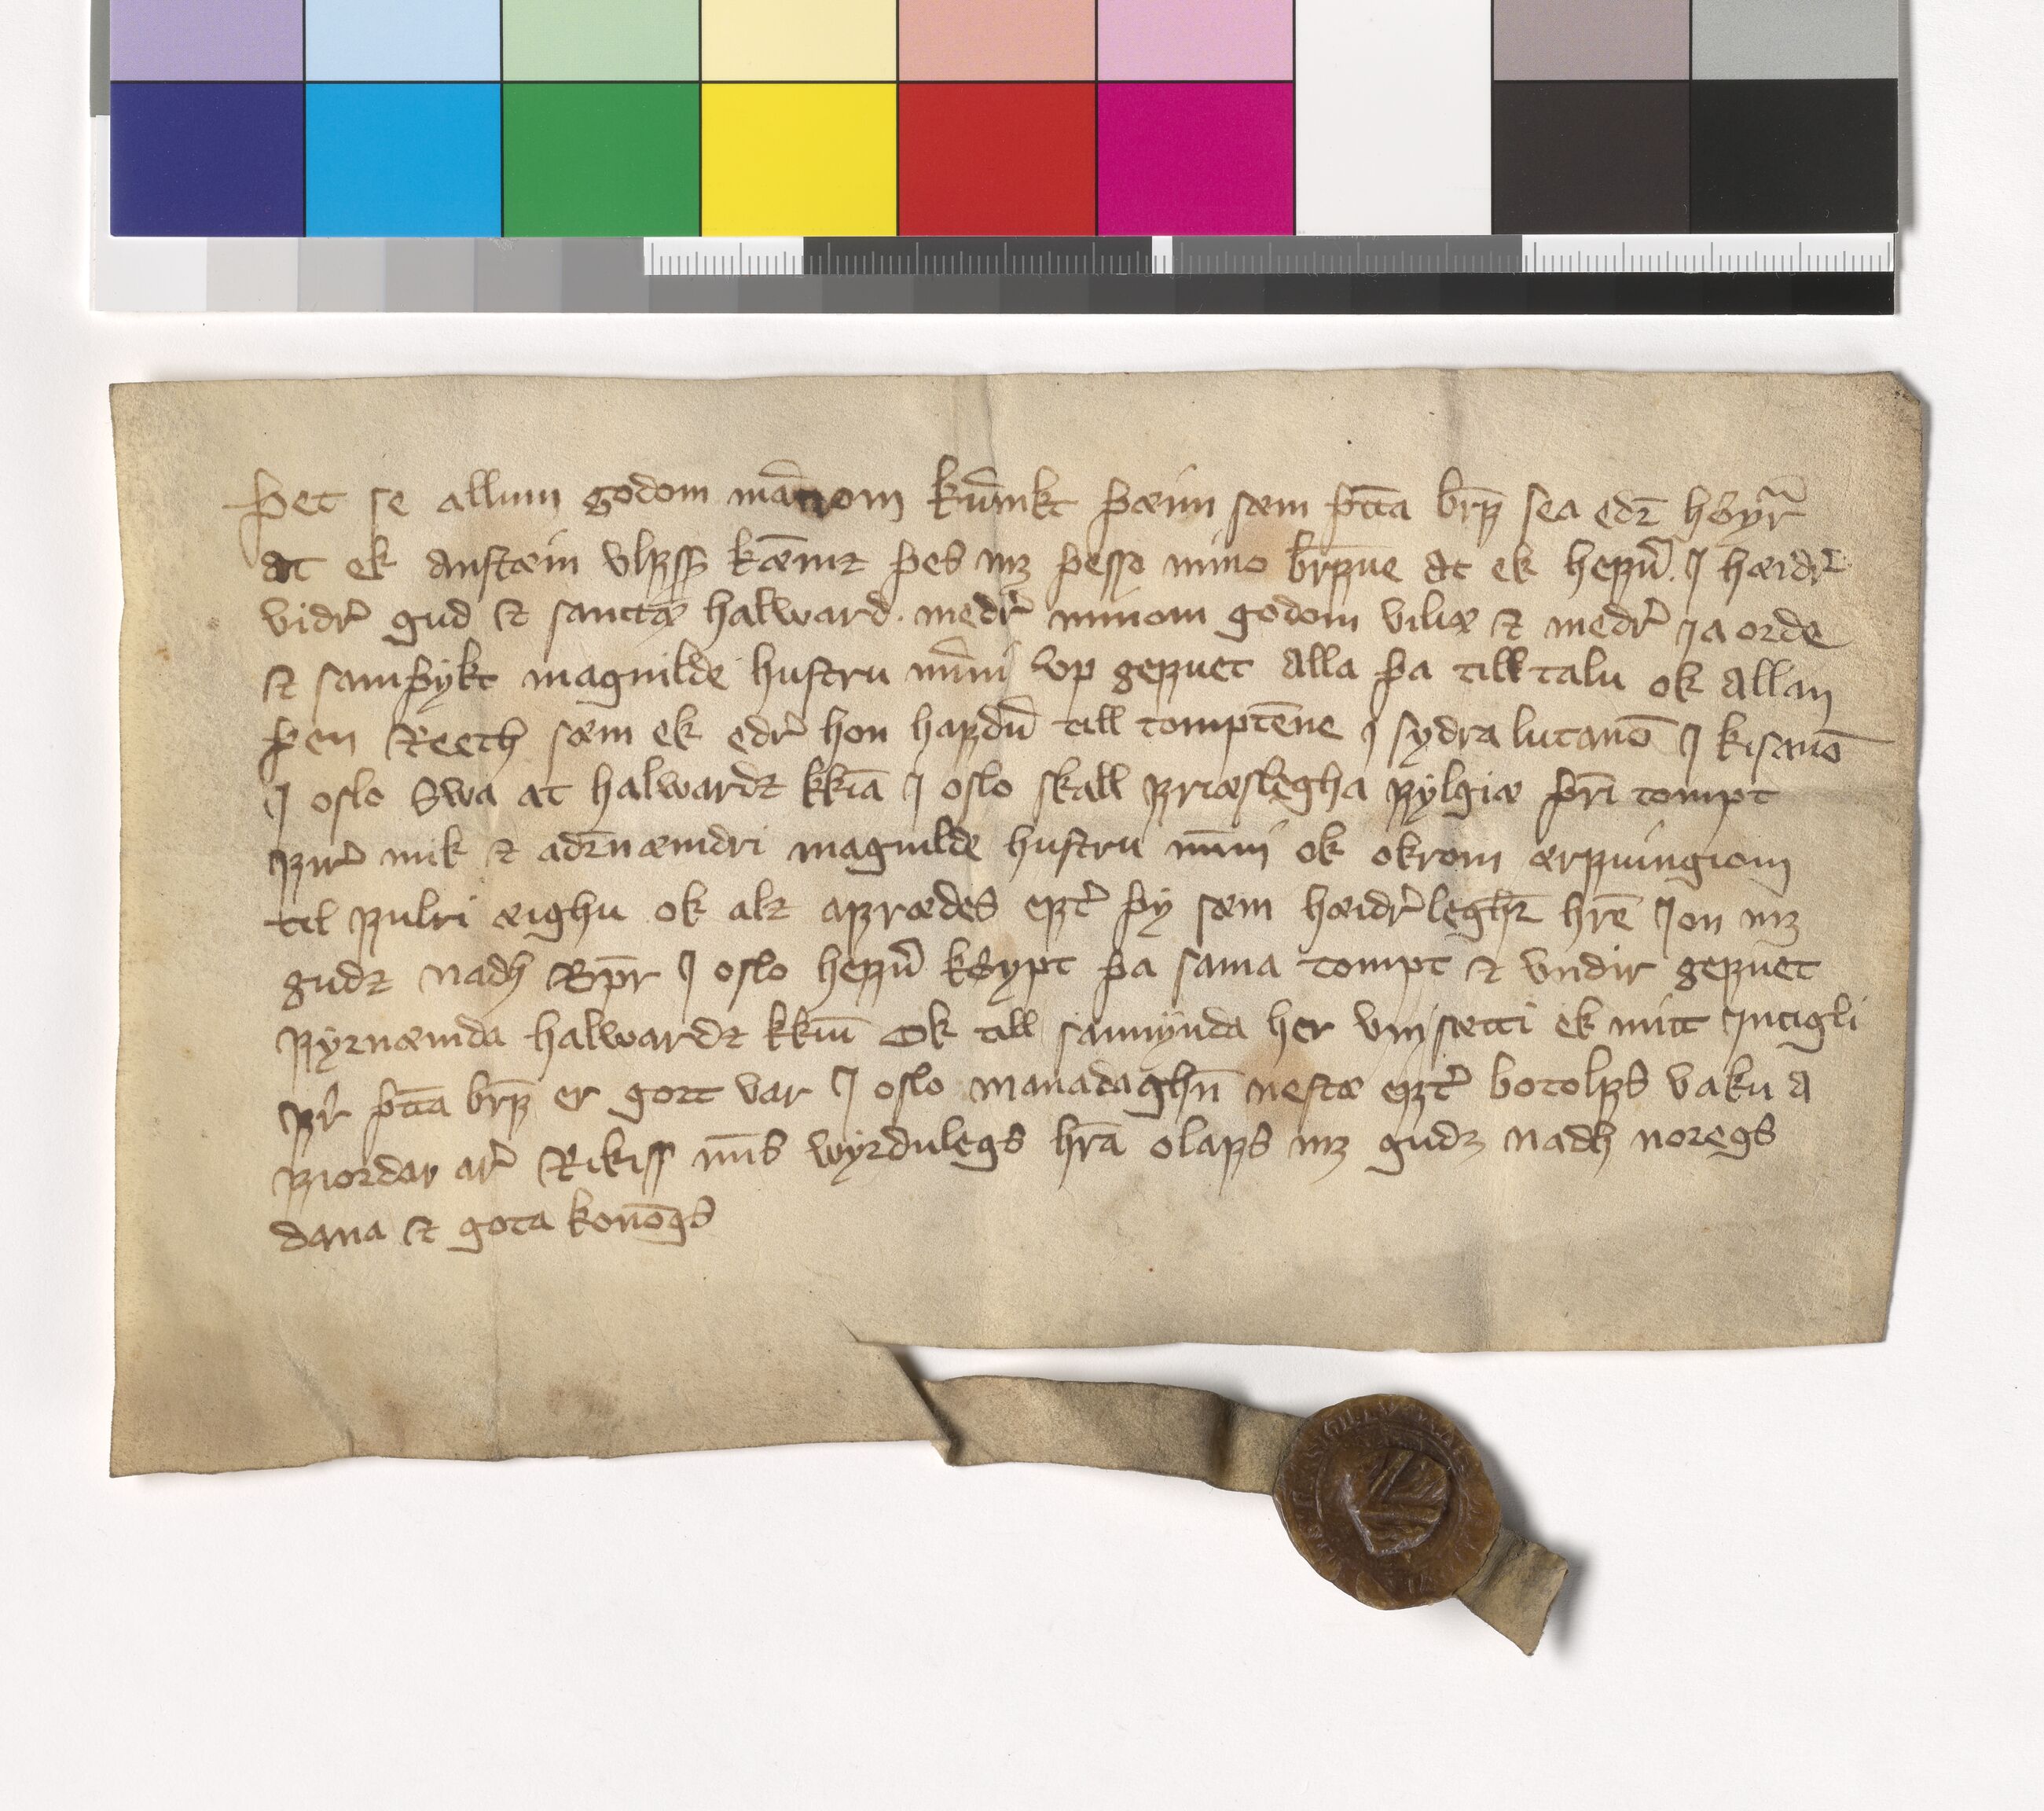 þet se allum godom ma᷎nnom kun̄ikt þæim sæm þt̄ta brf̄ sea edr̄ høyr͛
at ek austtæin vlfss̄ kæ̅niz þes mꝫ þesso mino brf̄ue at ek hefui͛ . J hæidr͛
vidr͛ gud ꝛ sanctæ halward . medr͛ minom godom viliæ ꝛ medr͛ ja orde
ꝛ samþykt magnilde hustru min̄i vp gefuet alla þa till talu ok allan
þen Reeth sæm ek edr͛ hon hafdu͛ till tomptēne j sydra lutanō J kisanō
J oslo Swa at halwardz kkiā J oslo skall friæslegha fylgiæ þr̄i tompt
fir͛ mik ꝛ adr̄næmdri magnilde hustru min̄i ok okrom ærfuingiom
til fulri æighu ok alz afrædes eft͛ þy sæm hæidr͛leghr̄ hrē Jon mꝫ
gudz nadh Bp̄r J oslo hefui͛ køypt þa sama tompt ꝛ vndir gefuet
fyrnæmda halwardz kkiū Ok till sannynda her vm sætti ek mitt Jncigli
fr͛ þt̄ta brf̄ er gort var J oslo manadaghn̄ nestæ eft͛ botolfs vaku a
fiordar ar͛ Rikiss mīs wyrdulegs hrā olafs mꝫ gudꝫ nadh noregs
dana ꝛ gota konōgs